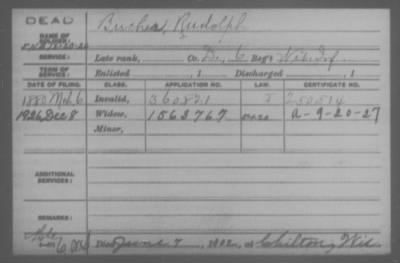 DEAD
Bucher, Rudolph
NAME OF SOLDIER:
SERVICE: Late rank, Co. D, 6 Reg't Wis Inf.
TERM OF SERVICE: Enlisted , 1 Discharged , 1
DATE OF FILING. CLASS. APPLICATION NO. LAW. CERTIFICATE NO.
1880 Mch 6 Invalid, 360821 250514
1926 Dec 8 Widow, 1563767 A-9-20-27
Minor,
ADDITIONAL SERVICES:
REMARKS:
Died June 7, 1902, at Chilton, Wis.